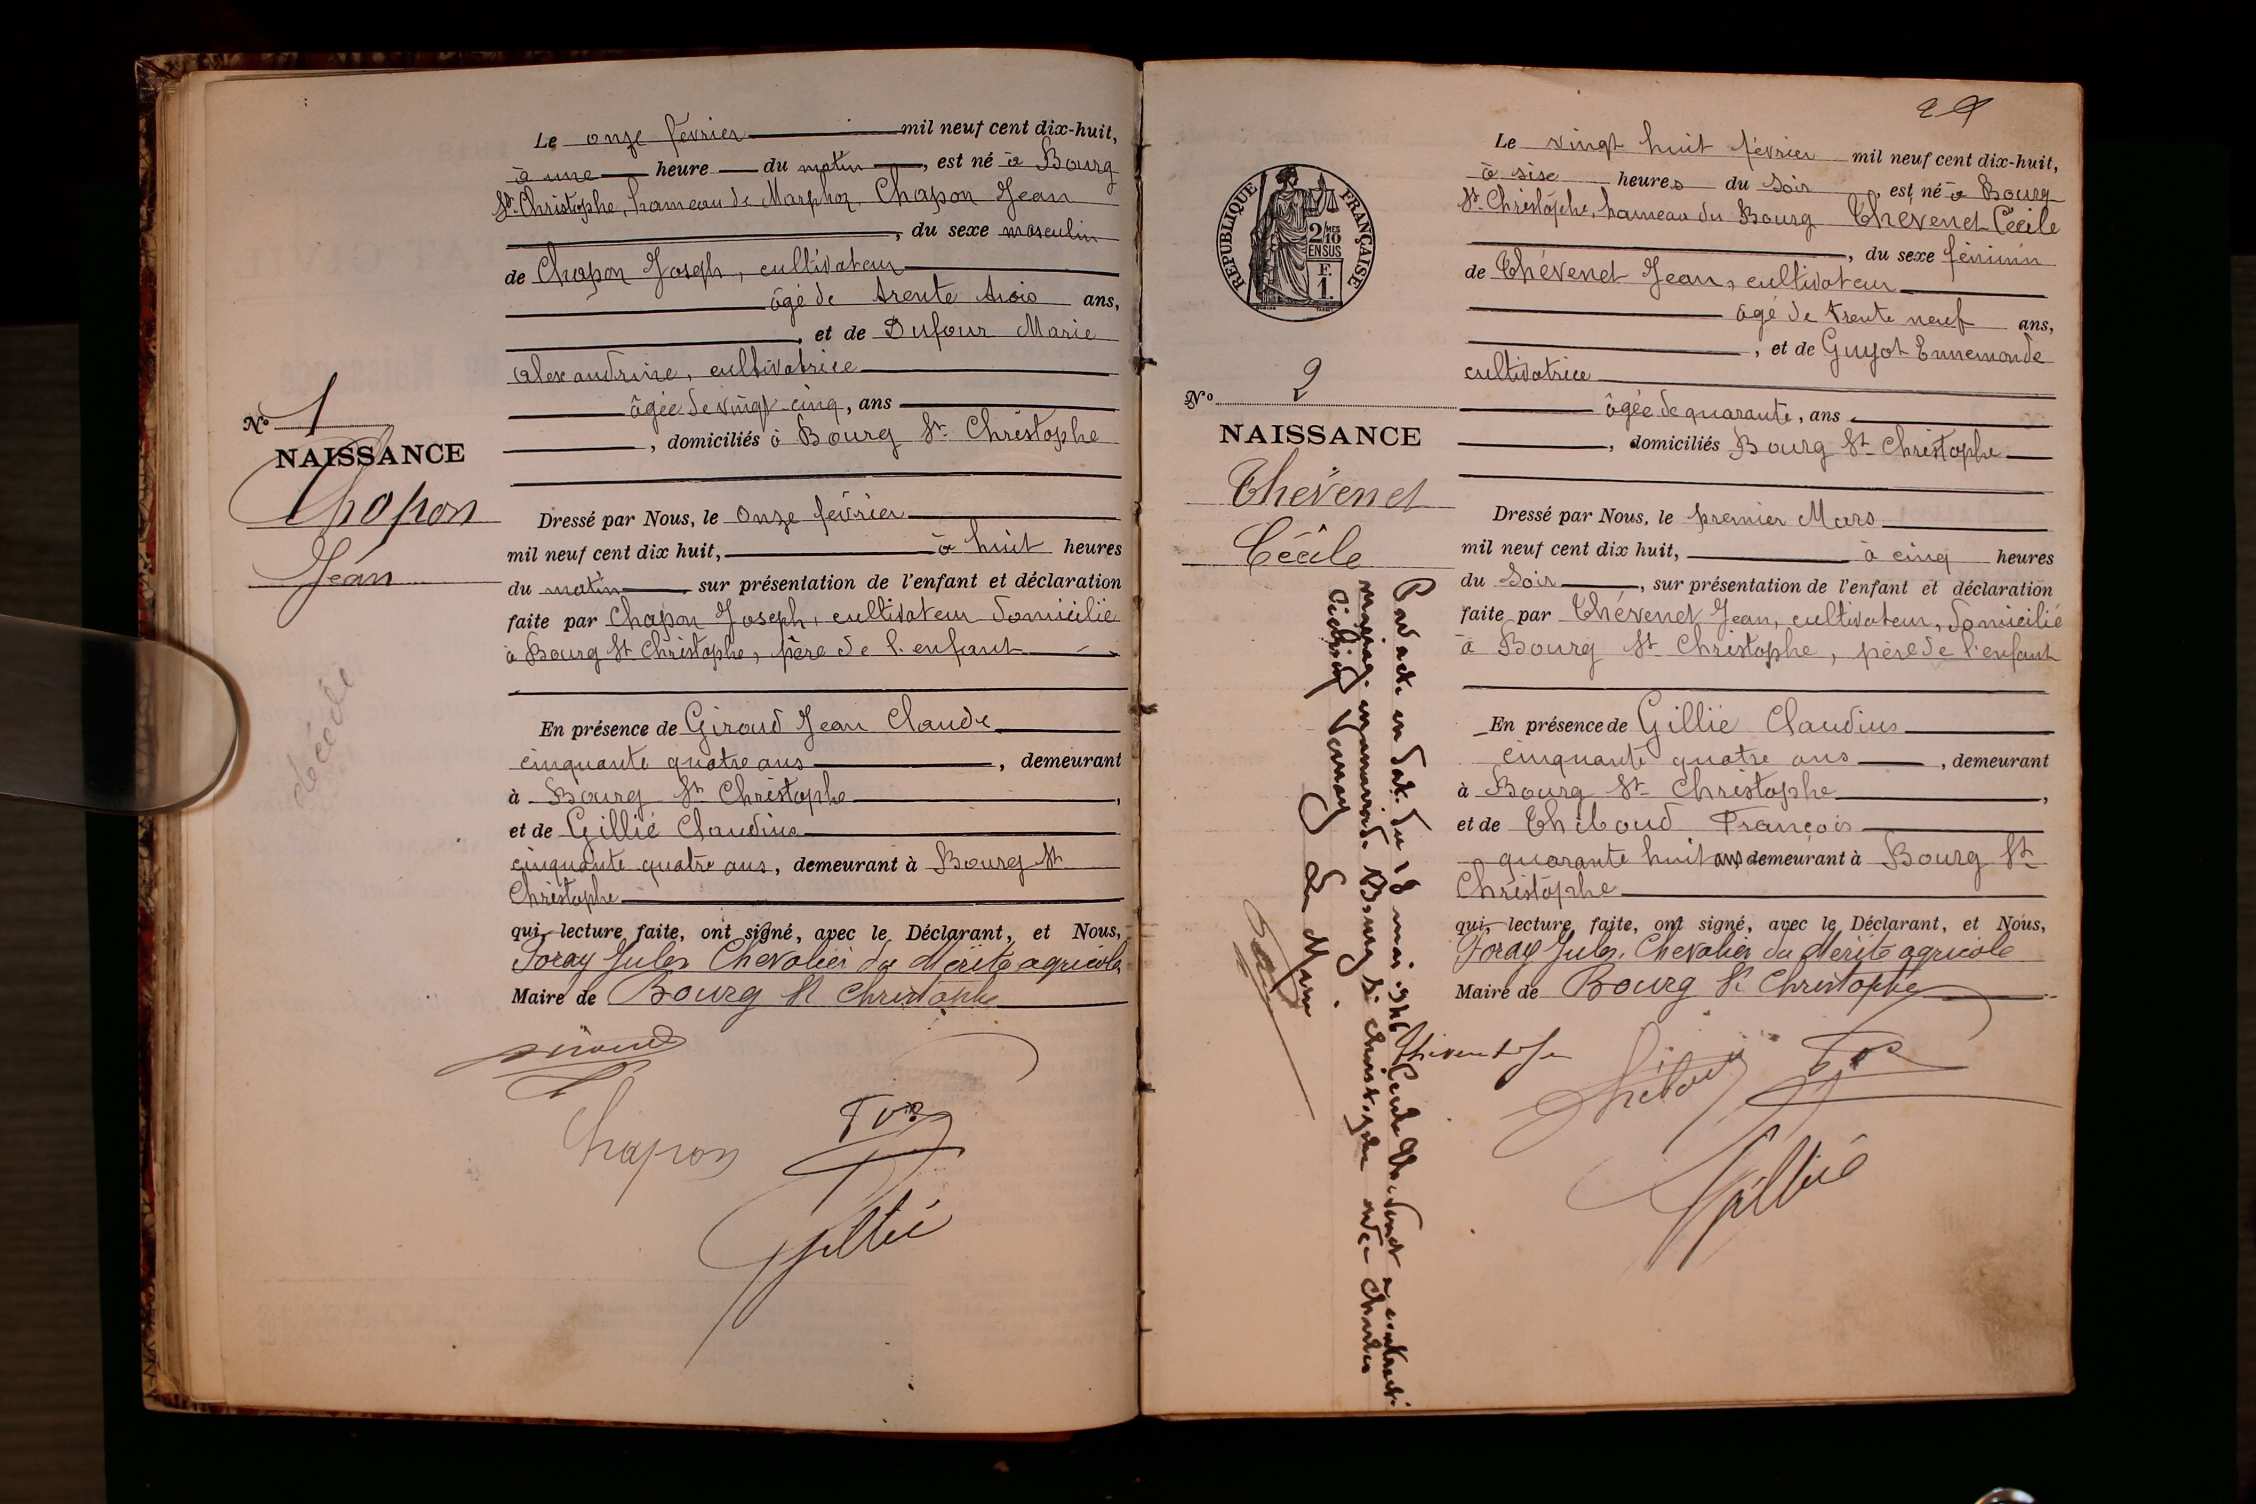 Le onze février mil neuf cent dix-huit,
à une heure du matin, est né à Bourg
St Christophe, hameau de Marphoz, Chapon Jean
, du sexe masculin
de Chapon Joseph, cultivateur
âgé de trente trois ans,
, et de Dufour Marie
Alexandrine, cultivatrice
âgée de vingt cinq, ans
, domiciliés à Bourg St Christophe
No 1
NAISSANCE
Chapon
Jean
Dressé par Nous, le onze février
mil neuf cent dix huit, à huit heures
du matin sur présentation de l'enfant et déclaration
faite par Chapon Joseph, cultivateur domicilié
à Bourg St Christophe, père de l'enfant
décédé
En présence de Giroud Jean Claude
cinquante quatre ans, demeurant
à Bourg St Christophe,
et de Gillié Claudius
cinquante quatre ans, demeurant à Bourg St
Christophe
qui, lecture faite, ont signé, avec le Déclarant, et Nous,
Foray Jules Chevalier du Mérite agricole
Maire de Bourg St Christophe
Giroud
Chapon
Gillié
29
Le vingt huit février mil neuf cent dix-huit,
à sise heures du soir, est né à Bourg
St Christophe, hameau du Bourg Thévenet Cécile
, du sexe féminin
de Thévenet Jean, cultivateur
âgé de trente neuf ans,
, et de Guyot Ennemonde
cultivatrice
âgée de quarante, ans
, domiciliés Bourg St Christophe
RÉPUBLIQUE FRANÇAISE
2/10 MES
EN SUS
F.
1.
No 2
NAISSANCE
Thévenet
Cécile
Dressé par Nous, le premier Mars
mil neuf cent dix huit, à cinq heures
du soir, sur présentation de l'enfant et déclaration
faite par Thévenet Jean, cultivateur, domicilié
à Bourg St Christophe, père de l'enfant
En présence de Gillié Claudius
cinquante quatre ans, demeurant
à Bourg St Christophe,
et de Thiboud François
quarante huit ans, demeurant à Bourg St
Christophe
qui, lecture faite, ont signé, avec le Déclarant, et Nous,
Foray Jules, Chevalier du Mérite agricole
Maire de Bourg St Christophe
Par acte en date du 18 mai Cécile Thévenet a contracté
mariage en mairie de Bourg St Christophe avec Charles
Le Maire
Thiboud
Gillié